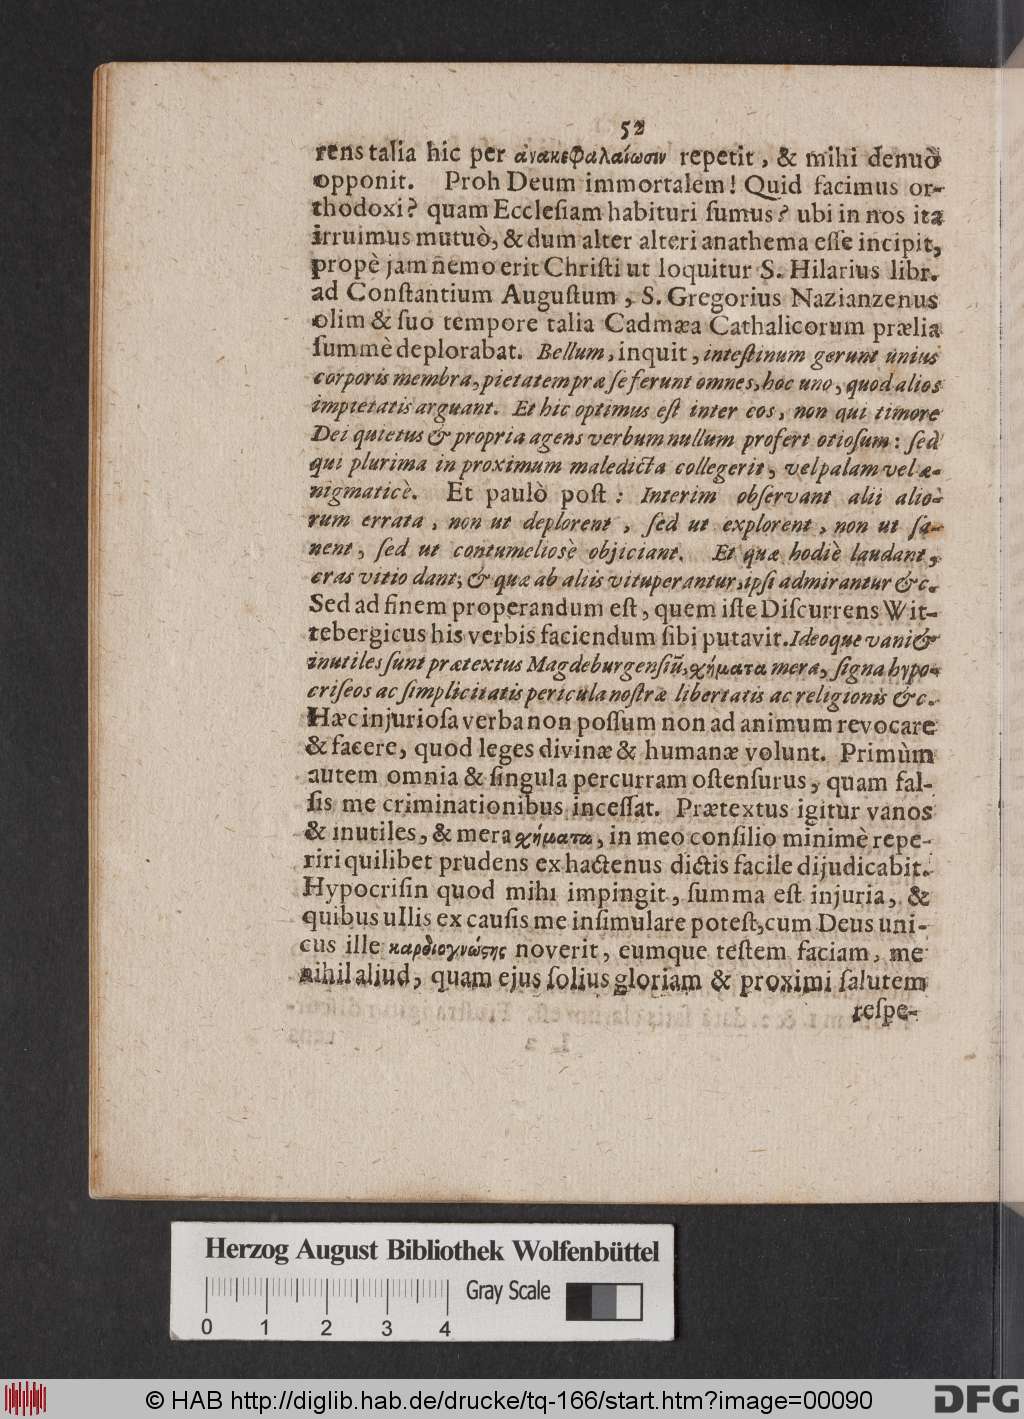 52
rens talia hic per ἀνακεφαλαίωσιν repetit, & mihi denuò
opponit. Proh Deum immortalem! Quid facimus or-
thodoxi? quam Ecclesiam habituri sumus? ubi in nos ita
irruimus mutuò, & dum alter alteri anathema esse incipit,
propè jam nemo erit Christi ut loquitur S. Hilarius libr.
ad Constantium Augustum, S. Gregorius Nazianzenus
olim & suo tempore talia Cadmæa Cathalicorum prælia
summè deplorabat. Bellum, inquit, intestinum gerunt unius
corporis membra, pietatem præ se ferunt omnes, hoc uno, quod alios
impietatis arguant. Et hic optimus est inter eos, non qui timore
Dei quietus & propria agens verbum nullum profert otiosum: sed
qui plurima in proximum maledicta collegerit, vel palam vel æ-
nigmaticè. Et paulò post: Interim observant alii alio-
rum errata, non ut deplorent, sed ut explorent, non ut sa-
nent, sed ut contumeliosè objiciant. Et quæ hodiè laudant,
cras vitio dant; & quæ ab aliis vituperantur, ipsi admirantur &c.
Sed ad finem properandum est, quem iste Discurrens Wit-
tebergicus his verbis faciendum sibi putavit. Ideoque vani &
inutiles sunt prætextus Magdeburgensiũ, χήματα mera, signa hypo-
criseos ac simplicitatis pericula nostræ libertatis ac religionis &c.
Hæc injuriosa verba non possum non ad animum revocare
& facere, quod leges divinæ & humanæ volunt. Primùm
autem omnia & singula percurram ostensurus, quam fal-
sis me criminationibus incessat. Prætextus igitur vanos
& inutiles, & mera χήματα, in meo consilio minimè repe-
riri quilibet prudens ex hactenus dictis facile dijudicabit.
Hypocrisin quod mihi impingit, summa est injuria, &
quibus ullis ex causis me insimulare potest, cum Deus uni-
cus ille καρδιογνώϛης noverit, eumque testem faciam, me
nihil aliud, quam ejus solius gloriam & proximi salutem
respe-
Herzog August Bibliothek Wolfenbüttel
Gray Scale
0 1 2 3 4
© HAB http://diglib.hab.de/drucke/tq-166/start.htm?image=00090
DFG